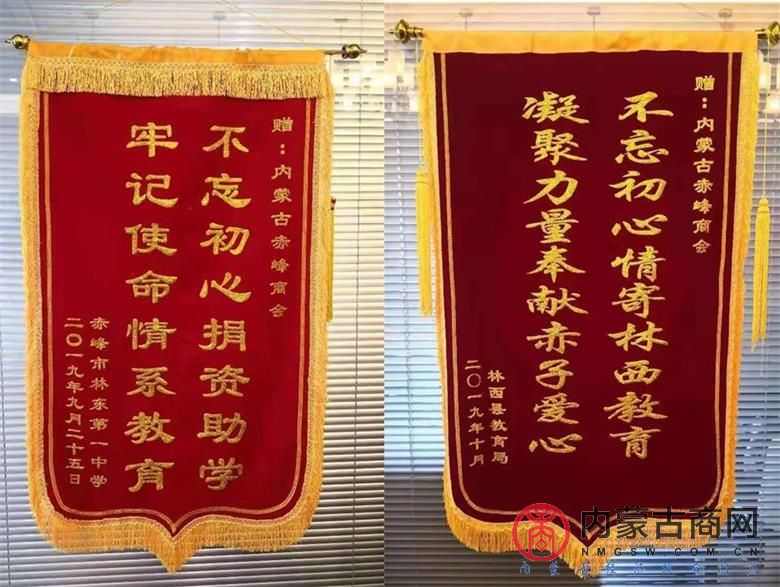 赠：内蒙古赤峰商会
不忘初心捐资助学
牢记使命情系教育
赤峰市林东第一中学
二〇一九年九月二十五日
赠：内蒙古赤峰商会
不忘初心情寄林西教育
凝聚力量奉献赤子爱心
林西县教育局
二〇一九年十月
内蒙古商网
NMGSW.COM.CN